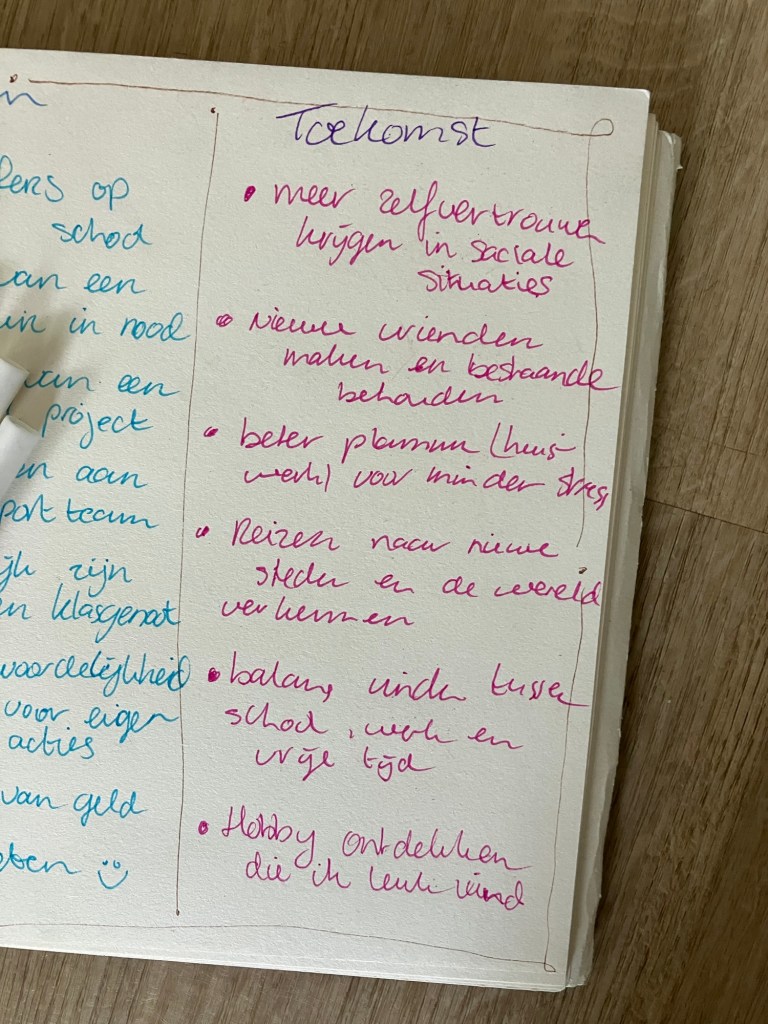 Toekomst
• meer zelfvertrouwen
krijgen in sociale
situaties
• Nieuwe vrienden
maken en bestaande
behouden
• beter plannen (huis-
werk) voor minder stress
• Reizen naar nieuwe
steden en de wereld
verkennen
• balans vinden tussen
school, werk en
vrije tijd
• Hobby ontdekken
die ik leuk vind
op
school
van een
in nood
van een
project
aan
team
zijn
klasgenoot
voor eigen
acties
van geld